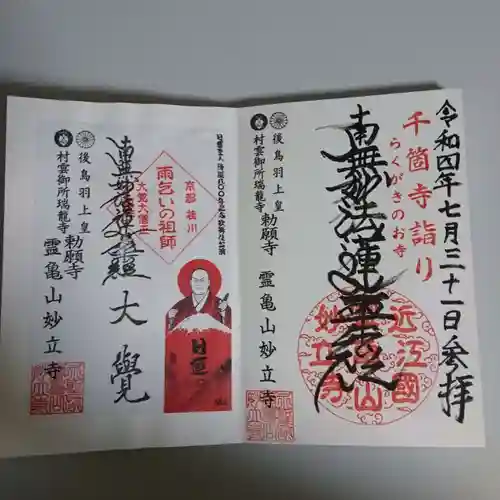 令和四年七月三十一日参拝
千箇寺詣り
らくがきのお寺
南無妙法蓮華経
近江國
妙立寺
後鳥羽上皇
勅願寺
村雲御所瑞龍寺
霊亀山妙立寺
雨乞いの祖師
京都 桂川
大覚大僧正
南無妙法蓮華経
大覺
後鳥羽上皇
勅願寺
村雲御所瑞龍寺
霊亀山妙立寺